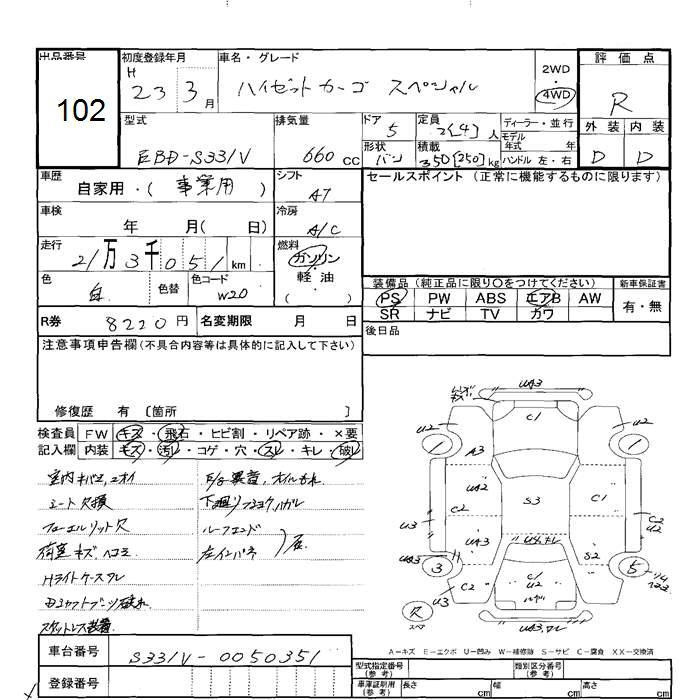 出品番号
102
初度登録年月
H 23 3月
車名・グレード
ハイゼットカーゴ スペシャル
2WD
4WD
評価点
R
外装 内装
D D
型式
EBD-S331V
排気量
660 cc
ドア
5
定員
2[4]人
形状
バン
積載
350[250]kg
ディーラー・並行
モデル年式 年
ハンドル 左・右
車歴
自家用・(事業用)
シフト
A7
車検
年 月( 日)
冷房
A/C
走行
21万3千051km
燃料
ガソリン
軽・油
( )
色
白
色替
色コード
W20
R券
8220円
名変期限 月 日
セールスポイント (正常に機能するものに限ります)
装備品 (純正品に限り〇をつけてください)
新車保証書
PS PW ABS エアB AW
SR ナビ TV カワ
有・無
後日品
注意事項申告欄(不具合内容等は具体的に記入して下さい)
修復歴 有 〔箇所 〕
検査員記入欄
FW キズ・飛石・ヒビ割・リペア跡・×要
内装 キズ・汚レ・コゲ・穴・スレ・キレ・破レ
室内キバミ、ニオイ
シート欠損
フューエルリット欠
荷室キズ、ヘコミ
Hライトケースワレ
スタットレス装着
E/G異音、オイルもれ
ルーフエンド
左インパネ
UA3
C1
U2
U2
1
1
A3
UA2
S3
C1
C2
C2
U2
U3
UA3
UA3
S2
3
5
C2
U3
C1
U2
欠
スペア
UA3、ワレ
A－キズ E－エクボ U－凹み W－補修跡 S－サビ C－腐食 XX－交換済
車台番号
S331V-0050351
登録番号
型式指定番号
(参考)
類別区分番号
(参考)
車庫証明用
(参考)
長さ cm 幅 cm 高さ cm